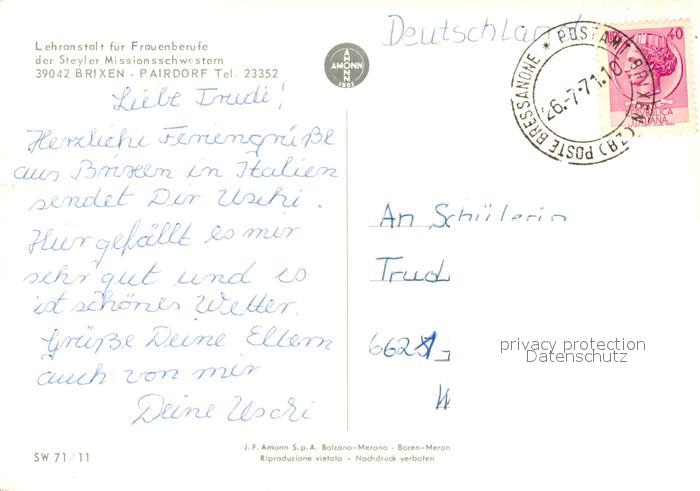 Lehranstalt für Frauenberufe
der Steyler Missionsschwestern
39042 BRIXEN - PAIRDORF Tel. 23352
Liebe Trudi!
Herzliche Feriengrüße
aus Brixen in Italien
sendet Dir Uschi.
Hier gefällt es mir
sehr gut und es
ist schönes Wetter.
Grüße Deine Eltern
auch von mir
Deine Uschi
SW 71/11
AMONN
AMONN
1802
J. F. Amonn S.p.A. Bolzano-Merano - Bozen-Meran
Riproduzione vietata - Nachdruck verboten
Deutschland
* POSTAMT BRIXEN (ZB) POSTE BRESSANONE
26.-7-71.10
40
REPUBBLICA
ITALIANA
An Schülerin
Trud
662
privacy protection
Datenschutz